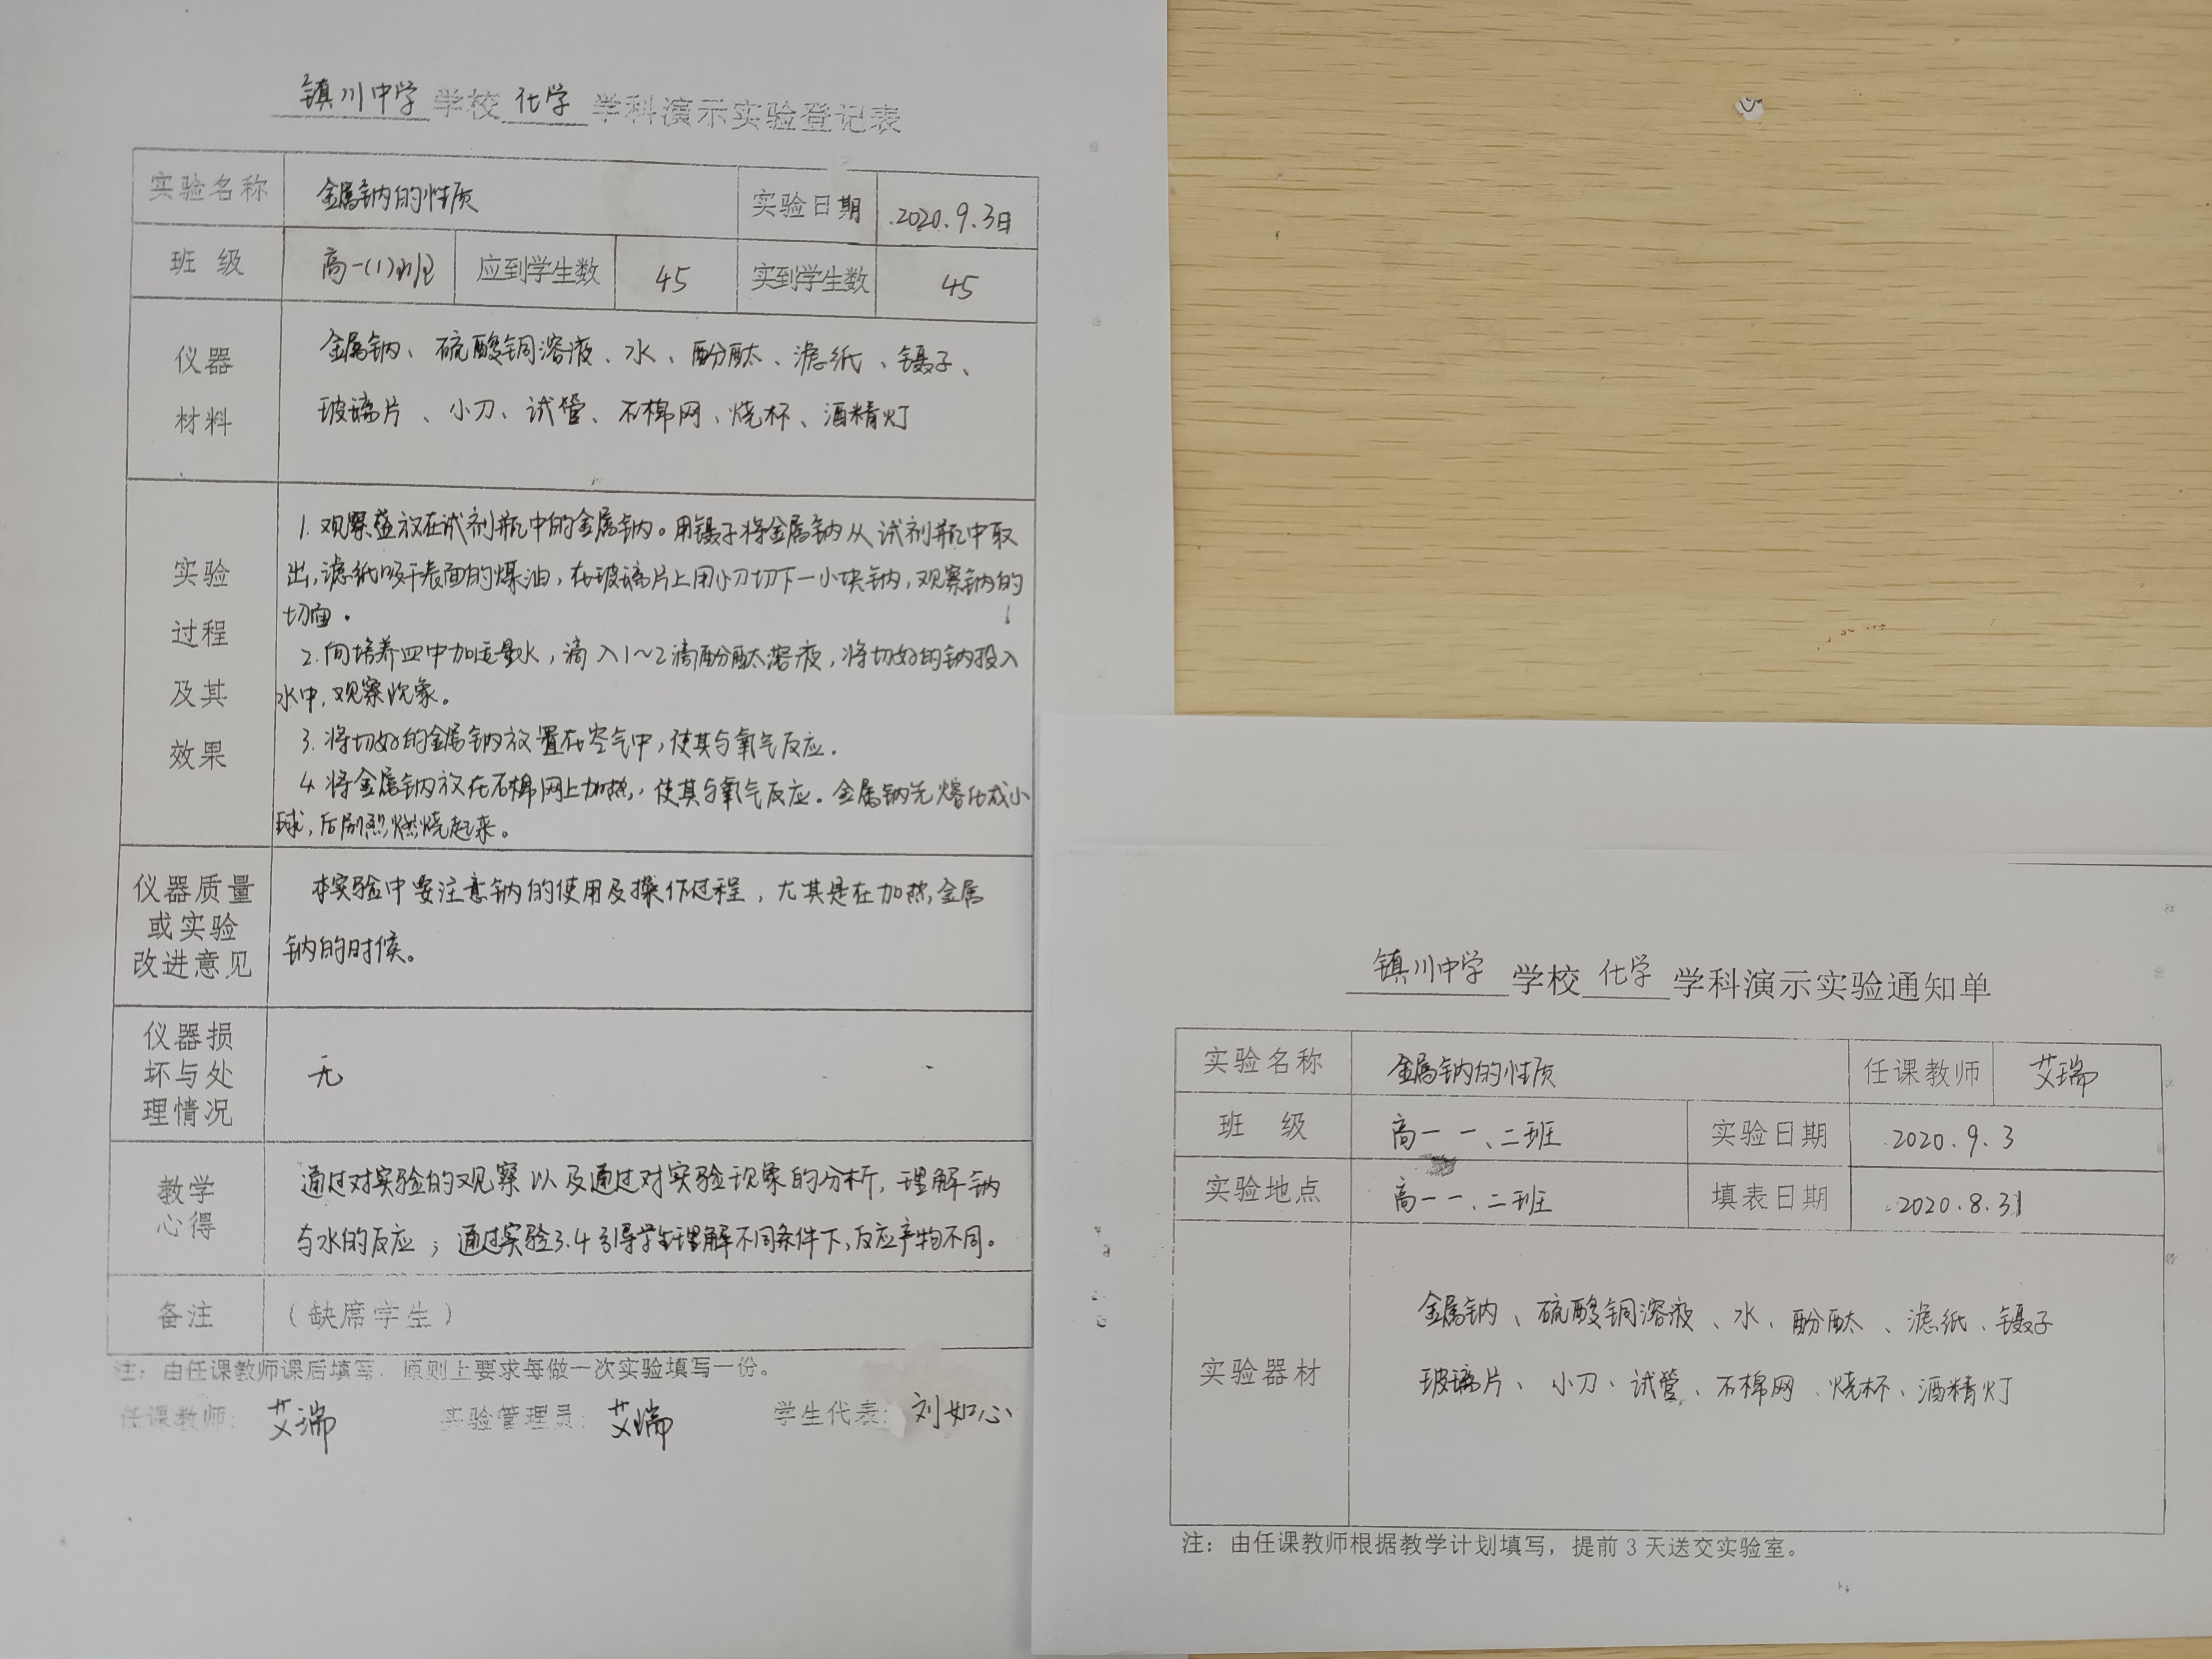 镇川中学学校化学学科演示实验登记表
实验名称 金属钠的性质 实验日期 2020.9.3日
班级 高一(1)班 应到学生数 45 实到学生数 45
仪器材料
金属钠、硫酸铜溶液、水、酚酞、滤纸、镊子、
玻璃片、小刀、试管、石棉网、烧杯、酒精灯
实验过程及其效果
1.观察盛放在试剂瓶中的金属钠。用镊子将金属钠从试剂瓶中取
出,滤纸吸干表面的煤油,在玻璃片上用小刀切下一小块钠,观察钠的
切面.
2.向培养皿中加适量水,滴入1~2滴酚酞溶液,将切好的钠投入
水中,观察现象。
3.将切好的金属钠放置在空气中,使其与氧气反应.
4.将金属钠放在石棉网上加热,使其与氧气反应。金属钠先熔化成小
球,后剧烈燃烧起来。
仪器质量
或实验
改进意见
本实验中要注意钠的使用及操作过程,尤其是在加热金属
钠的时候。
仪器损
坏与处
理情况
无
教学
心得
通过对实验的观察以及通过对实验现象的分析,理解钠
与水的反应;通过实验3.4引导学生理解不同条件下,反应产物不同。
备注 (缺席学生)
注:由任课教师课后填写,原则上要求每做一次实验填写一份。
任课教师:艾瑞 实验管理员:艾瑞 学生代表:刘如心
镇川中学学校化学学科演示实验通知单
实验名称 金属钠的性质 任课教师 艾瑞
班级 高一 一、二班 实验日期 2020.9.3
实验地点 高一 一、二班 填表日期 2020.8.31
实验器材
金属钠、硫酸铜溶液、水、酚酞、滤纸、镊子
玻璃片、小刀、试管、石棉网、烧杯、酒精灯
注:由任课教师根据教学计划填写,提前3天送交实验室。